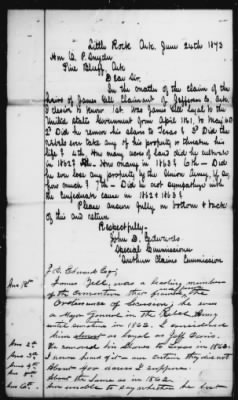 Little Rock Ark. June 24th 1873
Hon. O. P. Snyder
Pine Bluff, Ark
Dear Sir.
In the matter of the claim of the
heirs of James Yell Claimant of Jefferson Co. Ark.
I desire to know 1st Was James Yell loyal to the
United States Government from April 1861, to May 65
2d Did he remove his slaves to Texas & 3d Did the
rebels ever take any of his property or threaten his
life & 4th How many acres of land did he cultivate
in 1862? 5th How many in 1863 & 6th Did
he ever lose any property by the Union Army, if any
how much & 7th Did he not sympathize with
the Confederate cause in 1862 & 1863 &
Please answer fully on bottom & back
of this and return
Respectfully
John D. Edwards
Special Commissioner
Southern Claims Commission
J. D. Edwards Esq;
Ans 1st James Yell, was a leading member
of the convention that passed the
Ordinance of Secession, he was
a Major General in the Rebel Army
until sometime in 1862. I considered
him about as loyal as Jeff Davis.
Ans 2d He removed his slaves to Texas in 1863.
Ans 3d I never heard of it am certain they did not
Ans 4th About 600 acres I suppose.
Ans 5th About the same as in 1862.
Ans 6th Am unable to say whether he lost